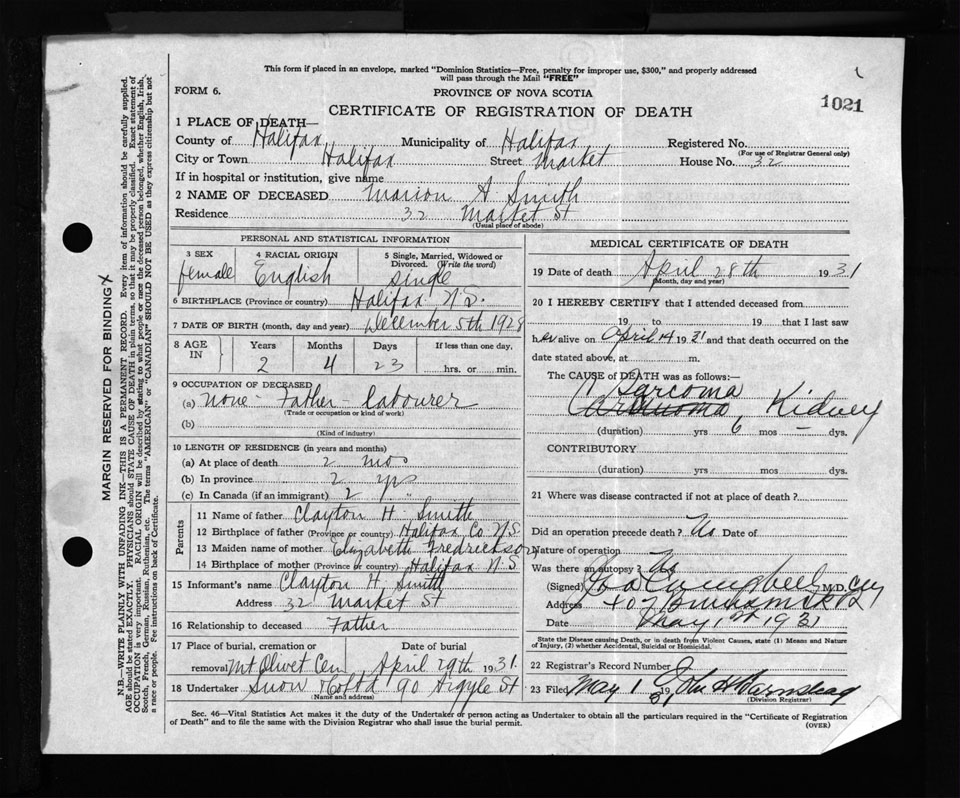 This form if placed in an envelope, marked "Dominion Statistics—Free, penalty for improper use, $300," and properly addressed
will pass through the Mail "FREE"
FORM 6.
PROVINCE OF NOVA SCOTIA
1021
CERTIFICATE OF REGISTRATION OF DEATH
1 PLACE OF DEATH—
County of Halifax Municipality of Halifax Registered No.
(For use of Registrar General only)
City or Town Halifax Street Market House No. 32
If in hospital or institution, give name
2 NAME OF DECEASED Marion A. Smith
Residence 32 Market St
(Usual place of abode)
PERSONAL AND STATISTICAL INFORMATION
3 SEX female
4 RACIAL ORIGIN English
5 Single, Married, Widowed or Divorced. (Write the word) Single
6 BIRTHPLACE (Province or country) Halifax N.S.
7 DATE OF BIRTH (month, day and year) December 5th 1928
8 AGE IN Years Months Days If less than one day,
2 4 23 hrs. or min.
9 OCCUPATION OF DECEASED
(a) None - Father - Labourer
(Trade or occupation or kind of work)
(b)
(Kind of industry)
10 LENGTH OF RESIDENCE (in years and months)
(a) At place of death 2 mos
(b) In province 2 yrs
(c) In Canada (if an immigrant) 2 "
Parents
11 Name of father Clayton H Smith
12 Birthplace of father (Province or country) Halifax Co. N.S.
13 Maiden name of mother Elizabeth Fredrickson
14 Birthplace of mother (Province or country) Halifax N.S.
15 Informant's name Clayton H. Smith
Address 32 Market St
16 Relationship to deceased Father
17 Place of burial, cremation or removal Mt Olivet Cem Date of burial April 29th 1931.
18 Undertaker Snow & Co Ltd 90 Argyle St
(Name and address)
MEDICAL CERTIFICATE OF DEATH
19 Date of death April 28th 1931
(Month, day and year)
20 I HEREBY CERTIFY that I attended deceased from
19 to 19 that I last saw
her alive on April 14 1931 and that death occurred on the
date stated above, at m.
The CAUSE of DEATH was as follows:—
Sarcoma
Carcinoma Kidney
(duration) yrs 6 mos — dys.
CONTRIBUTORY
(duration) yrs. mos. dys.
21 Where was disease contracted if not at place of death?
Did an operation precede death? No Date of
Nature of operation
Was there an autopsy? No
(Signed) Campbell M.D.
Address
Date May 1st 1931
State the Disease causing Death, or in death from Violent Causes, state (1) Means and Nature
of Injury, (2) whether Accidental, Suicidal or Homicidal.
22 Registrar's Record Number
23 Filed May 1 1931 John H
(Division Registrar)
Sec. 46—Vital Statistics Act makes it the duty of the Undertaker or person acting as Undertaker to obtain all the particulars required in the "Certificate of Registration
of Death" and to file the same with the Division Registrar who shall issue the burial permit.
(OVER)
MARGIN RESERVED FOR BINDING
N.B.—WRITE PLAINLY WITH UNFADING INK—THIS IS A PERMANENT RECORD. Every item of information should be carefully supplied.
AGE should be stated EXACTLY. PHYSICIANS should STATE CAUSE OF DEATH in plain terms, so that it may be properly classified. Exact statement of
OCCUPATION is very important. RACIAL ORIGIN will be described by stating to what people or race the deceased person belonged, whether English, Irish,
Scotch, French, German, Russian, Ruthenian, etc. The terms "AMERICAN" or "CANADIAN" SHOULD NOT BE USED as they express citizenship but not
a race or people. See instructions on back of Certificate.